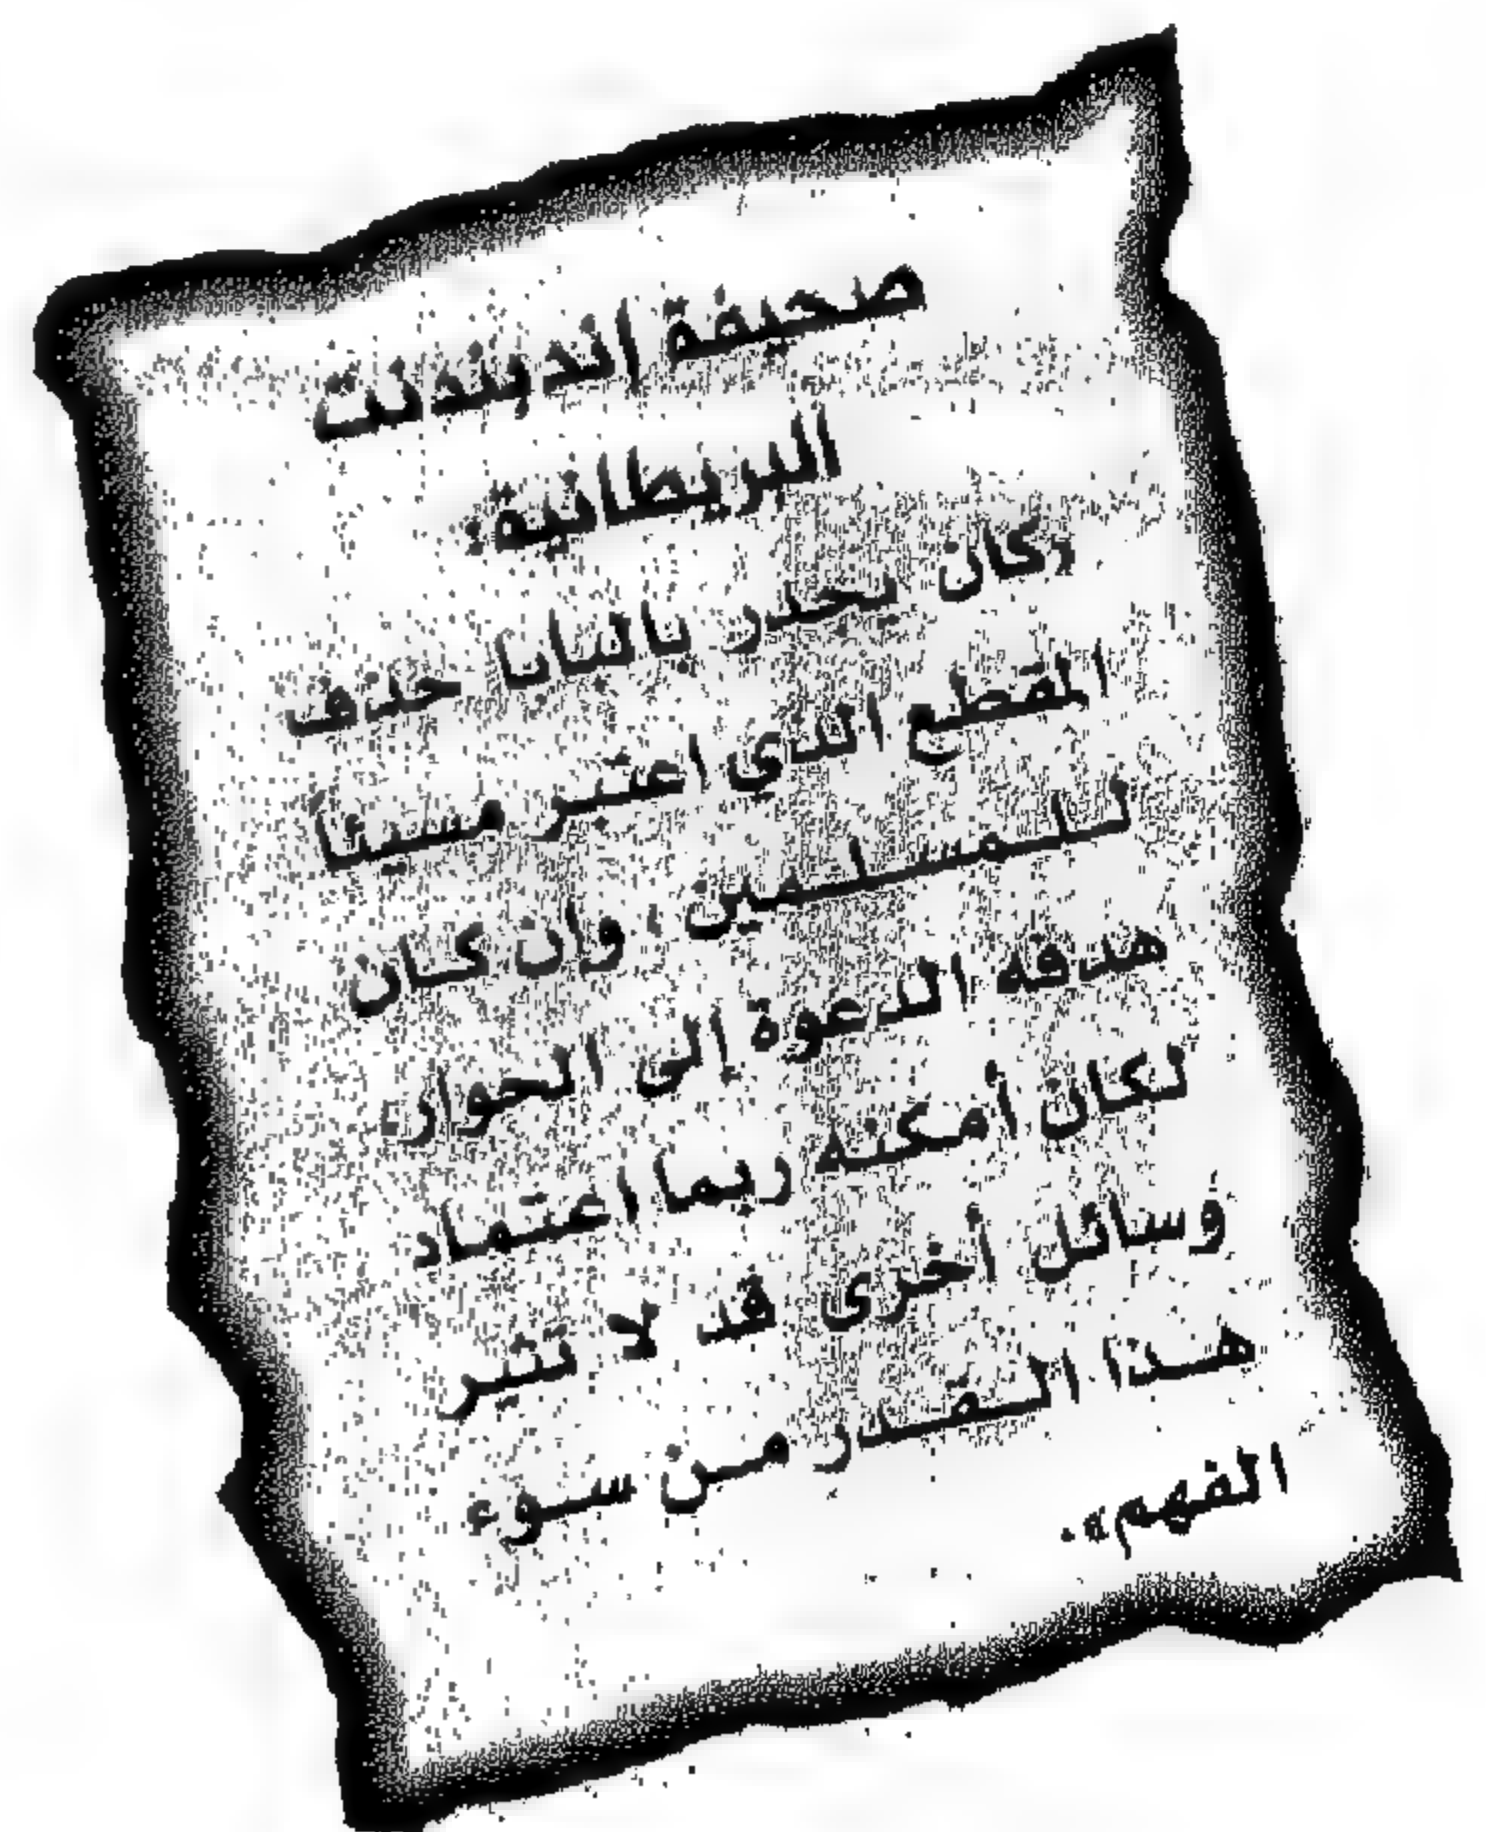 صحيفة إندبندنت
البريطانية:
«كان يجدر بالبابا حذف
المقطع الذي اعتبر مسيئاً
للمسلمين، وإن كان
هدفه الدعوة إلى الحوار،
لكان أمكنه ربما اعتماد
وسائل أخرى قد لا تثير
هذا القدر من سوء
الفهم».